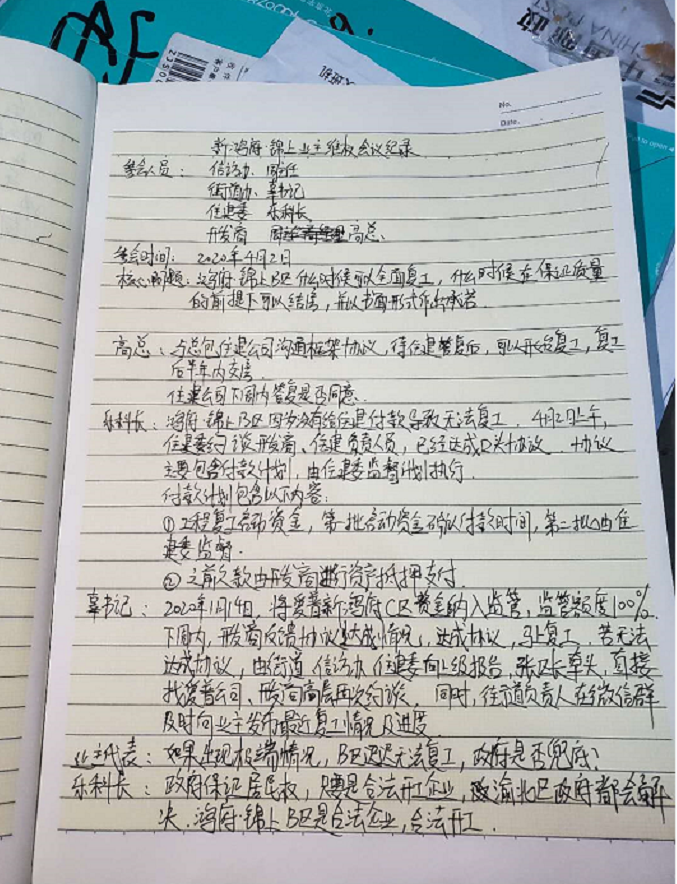 CHINA POST
No.
Date.
新·鸿府·锦上业主维权会议纪录
参会人员： 信访办 周主任
街道办 辜书记
住建委 乐科长
开发商 高总
参会时间： 2020年4月2日
核心问题：鸿府·锦上B区什么时候可以全面复工，什么时候在保证质量
的前提下可以结房，并以书面形式作出承诺.
高总： 与总包住建公司沟通框架协议，待住建答复后，可以开始复工，复工
后半年内交房.
住建公司下周内答复是否同意.
乐科长： 鸿府·锦上B区因为没有给住建付款导致无法复工. 4月2日上午，
住建委约谈开发商、住建负责人员，已经达成口头协议. 协议
主要包含付款计划，由住建委监督计划执行.
付款计划包含以下内容：
① 工程复工启动资金，第一批启动资金确认付款时间，第二批由住
建委监督.
② 之前欠款由开发商进行资产抵押支付.
辜书记： 2020年1月14日，将爱普新鸿府C区资金纳入监管，监管额度100%.
下周内，开发商反馈协议达成情况，达成协议，马上复工，若无法
达成协议，由街道、信访办、住建委向上级报告，张区长牵头，直接
找爱普公司、开发商高层再次约谈. 同时，街道负责人在微信群
及时向业主发布最近复工情况及进度.
业主代表： 如果出现极端情况，B区迟迟无法复工，政府是否兜底？
乐科长： 政府保证居民权，只要是合法开工企业，渝北区政府都会解
决. 鸿府·锦上B区是合法企业，合法开工.